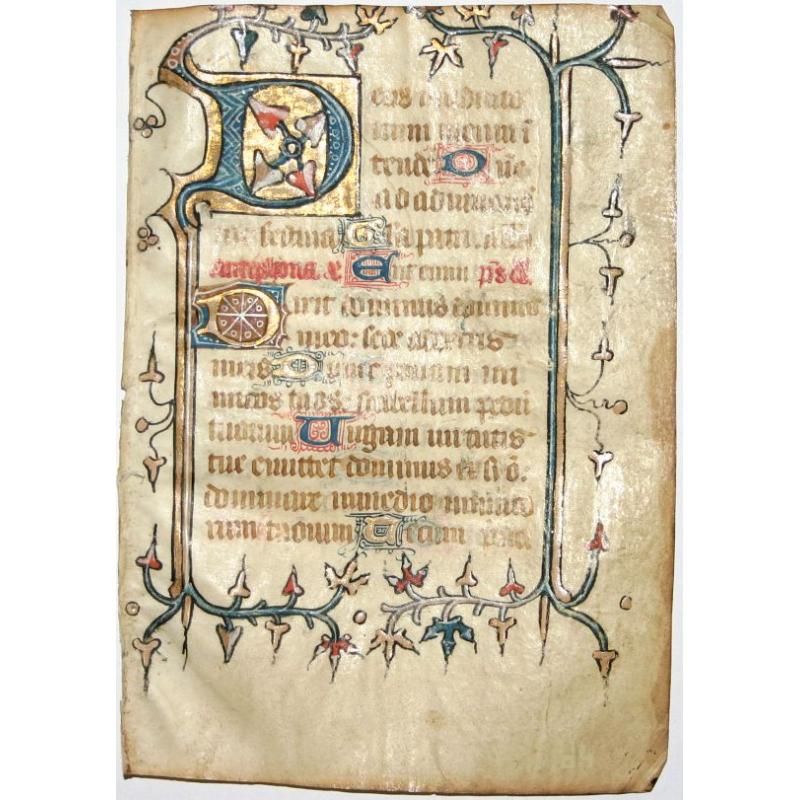 Deus in adiuto
rium meum ī
tende Dn̄e
ad adiuuand
me festina Gloria patri. alla
Dixit dominus domino
meo: sede a dextris
meis Donec ponam ini
micos tuos: scabellum pedū
tuorum Uirgam uirtutis
tue emittet dominus ex siō:
dominare in medio inimico
rum tuorum Tecum prin